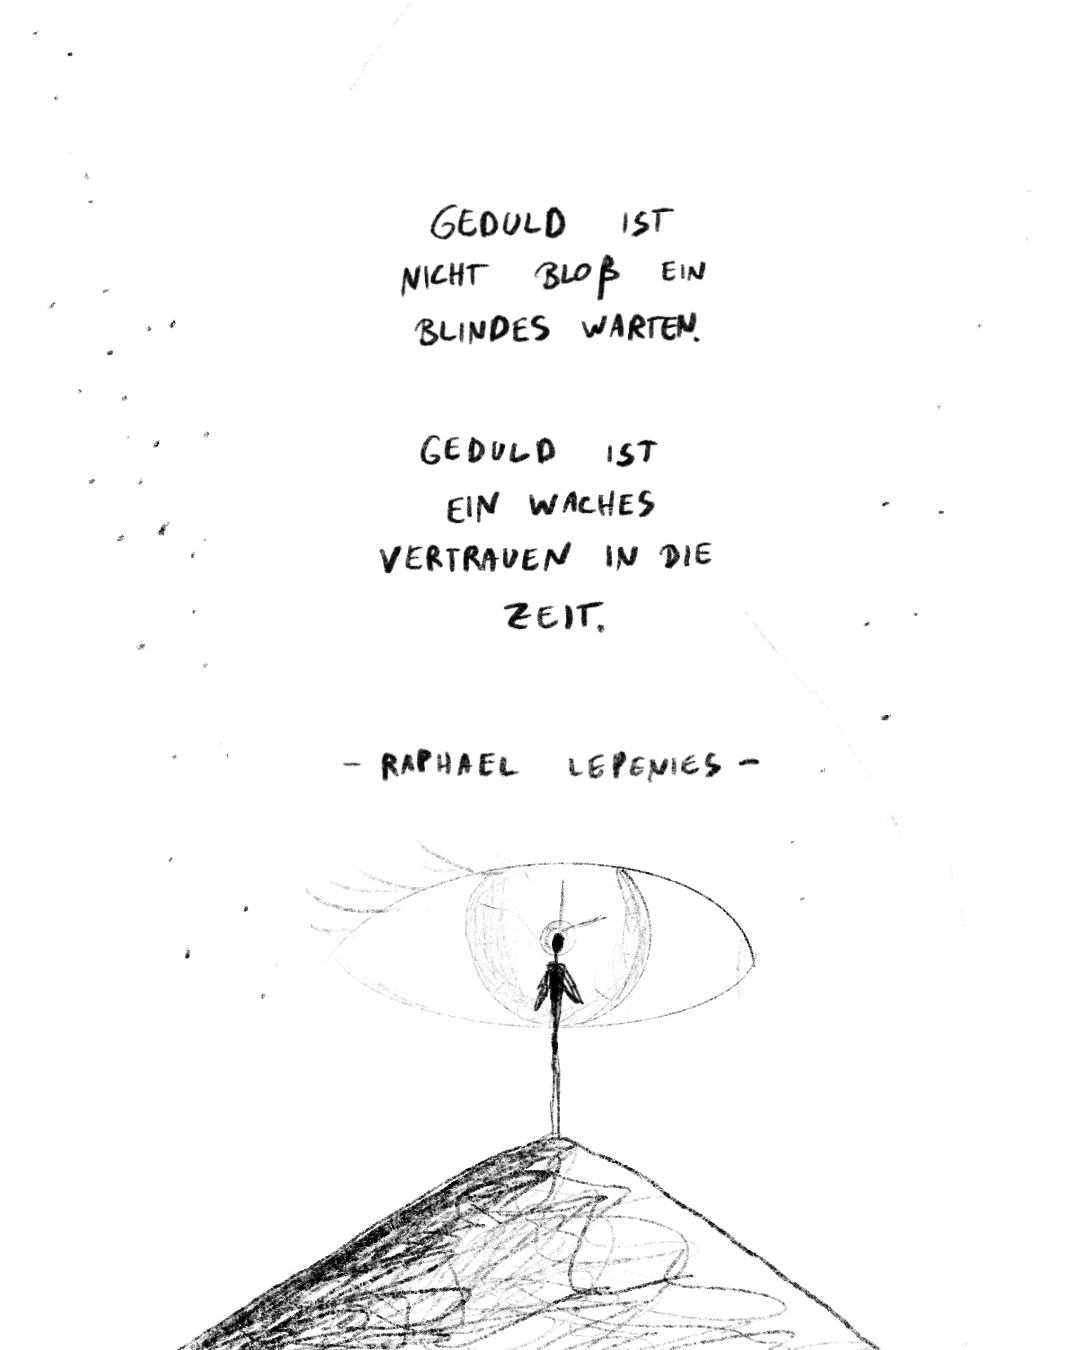 GEDULD IST
NICHT BLOß EIN
BLINDES WARTEN.
GEDULD IST
EIN WACHES
VERTRAUEN IN DIE
ZEIT.
- RAPHAEL LEPENIES -